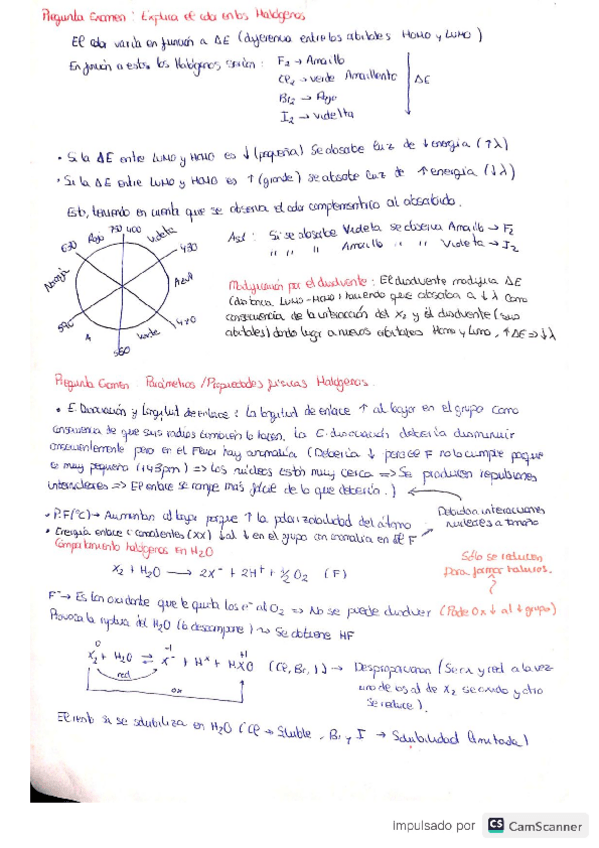 Pregunta Examen: Explica el color en los Halógenos
El color varía en función a ΔE (diferencia entre los orbitales HOMO y LUMO)
En función a esto, los Halógenos serían: F₂ → Amarillo
Cl₂ → verde Amarillento
ΔE
Br₂ → Rojo
I₂ → violeta
• Si la ΔE entre LUMO y HOMO es ↓ (pequeña) Se absorbe luz de ↓ energía (↑λ)
• Si la ΔE entre LUMO y HOMO es ↑ (grande) se absorbe luz de ↑ energía (↓λ)
Esto, teniendo en cuenta que se observa el color complementario al absorbido.
Así: Si se absorbe Violeta se observa Amarillo → F₂
" " " Amarillo " " Violeta → I₂
750 400
Rojo
Violeta
630
430
Naranja
Azul
590
470
A
Verde
560
Modificación por el disolvente: El disolvente modifica ΔE
(distancia LUMO-HOMO) haciendo que absorba a ↓λ como
consecuencia de la interacción del X₂ y el disolvente (sus
orbitales) dando lugar a nuevos orbitales Homo y Lumo, ↑ΔE ⇒ ↓λ
Pregunta Examen: Parámetros / Propiedades físicas Halógenos.
• E. Disociación y Longitud de enlace: La longitud de enlace ↑ al bajar en el grupo como
consecuencia de que sus radios también lo hacen. La E. disociación debería disminuir
consecuentemente pero en el Flúor hay anomalía (Debería ↓ pero el F no lo cumple porque
es muy pequeño (143pm) ⇒ Los núcleos están muy cerca ⇒ Se producen repulsiones
internucleares ⇒ El enlace se rompe más fácil de lo que debería.)
Debido a interacciones
nucleares a tamaño
• P.F(ºC) → Aumentan al bajar porque ↑ la polarizabilidad del átomo
• Energía enlace: covalentes (XX) ↓ al ↓ en el grupo con anomalía en el F
Comportamiento halógenos en H₂O
Sólo se reducen
para formar haluros.
X₂ + H₂O → 2X⁻ + 2H⁺ + ½O₂ (F)
F → Es tan oxidante que le quita los e⁻ al O₂ ⇒ No se puede disolver (Pode Ox ↓ al ↓ grupo)
Provoca la ruptura del H₂O (lo descompone) → Se obtiene HF
0 -1 +1
X₂ + H₂O ⇌ X⁻ + H⁺ + HXO (Cl, Br, I) → Desproporcionan (Se ox y red a la vez
red
uno de los at de X₂ se oxida y otro
ox
se reduce).
El resto si se solubiliza en H₂O (Cl → Soluble, Br y I → Solubilidad limitada)
Impulsado por CS CamScanner